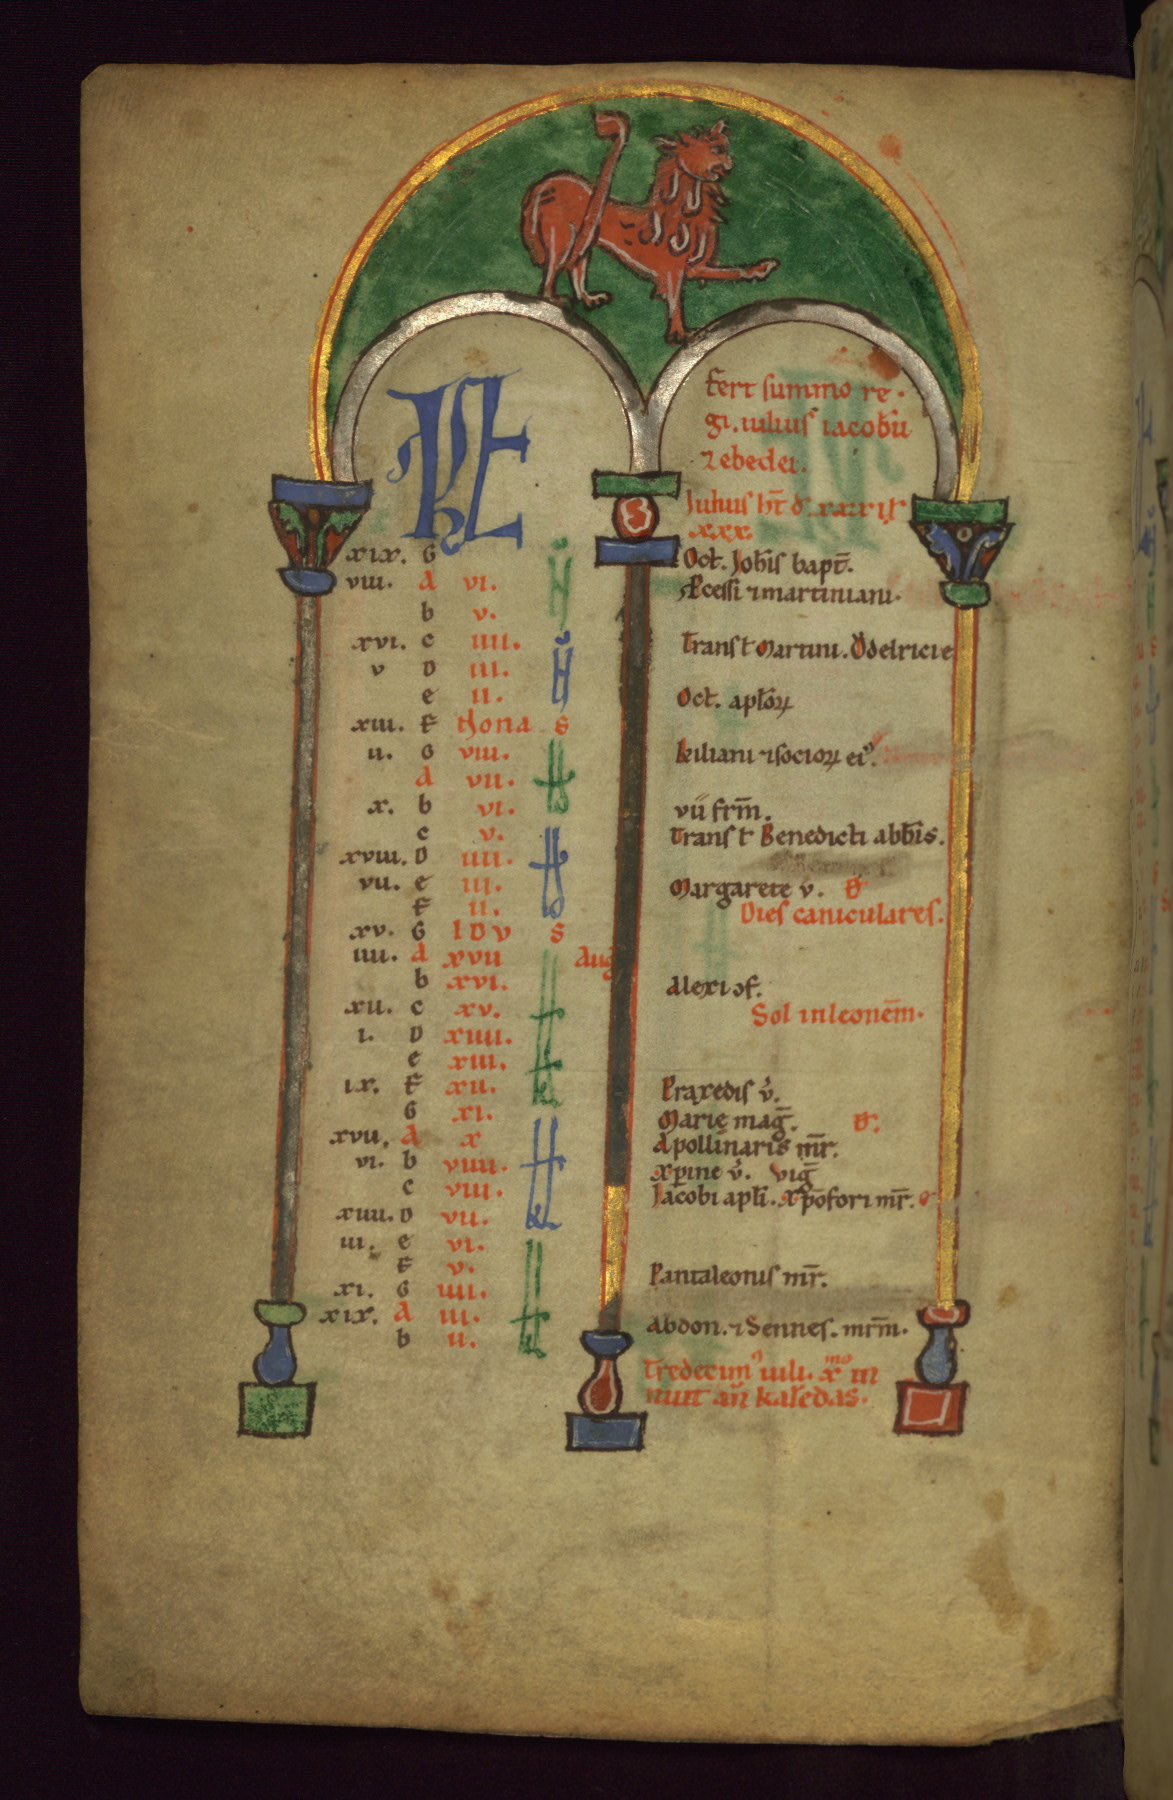 KL
Fert summo re-
gi. iulius iacobū
zebedei.
Iulius ht̄
xxx.
xix. G Oct. Joh̄is bapt̄.
viii. A vi. N̄ Pcessi ⁊ martiniani.
b v.
xvi. c iiii. Transt Martini. Ǒdelricie
v D iii. N̄
e ii. Oct. apl̄oꝝ
xiii. F Nona s
ii. G viii. kiliani ⁊ socioꝝ ei᷒.
A vii.
x. b vi. vii frm̄.
c v. Transt Benedicti abb̄is.
xviii. D iiii.
vii. e iii. Margarete v̄.
F ii. Dies caniculares.
xv. G IDV s
iiii. A xvii Aug̃
b xvi. Alexi ↄf.
xii. c xv. Sol in leonēm.
i. D xiiii.
e xiii.
ix. F xii. Praxedis v̄.
G xi. Marie mag̃.
xvii. A x Apollinaris mr̄.
vi. b viiii. xp̄ine v̄. vig̃
c viii. Jacobi apl̄i. xp̄ofori mr̄.
xiiii. D vii.
iii. e vi.
F v. Pantaleonis mr̄.
xi. G iiii.
xix. A iii. Abdon. ⁊ Sennes. mrm̄.
b ii.
Tredecim᷒ iuli. x in
nuit añ kaledas.